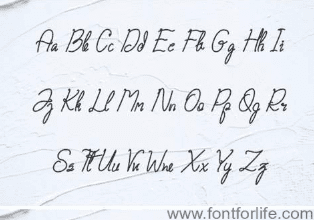 Aa Bb Cc Dd Ee Ff Gg Hh Ii
Jj Kk Ll Mm Nn Oo Pp Qq Rr
Ss Tt Uu Vv Ww Xx Yy Zz
www.fontforlife.com